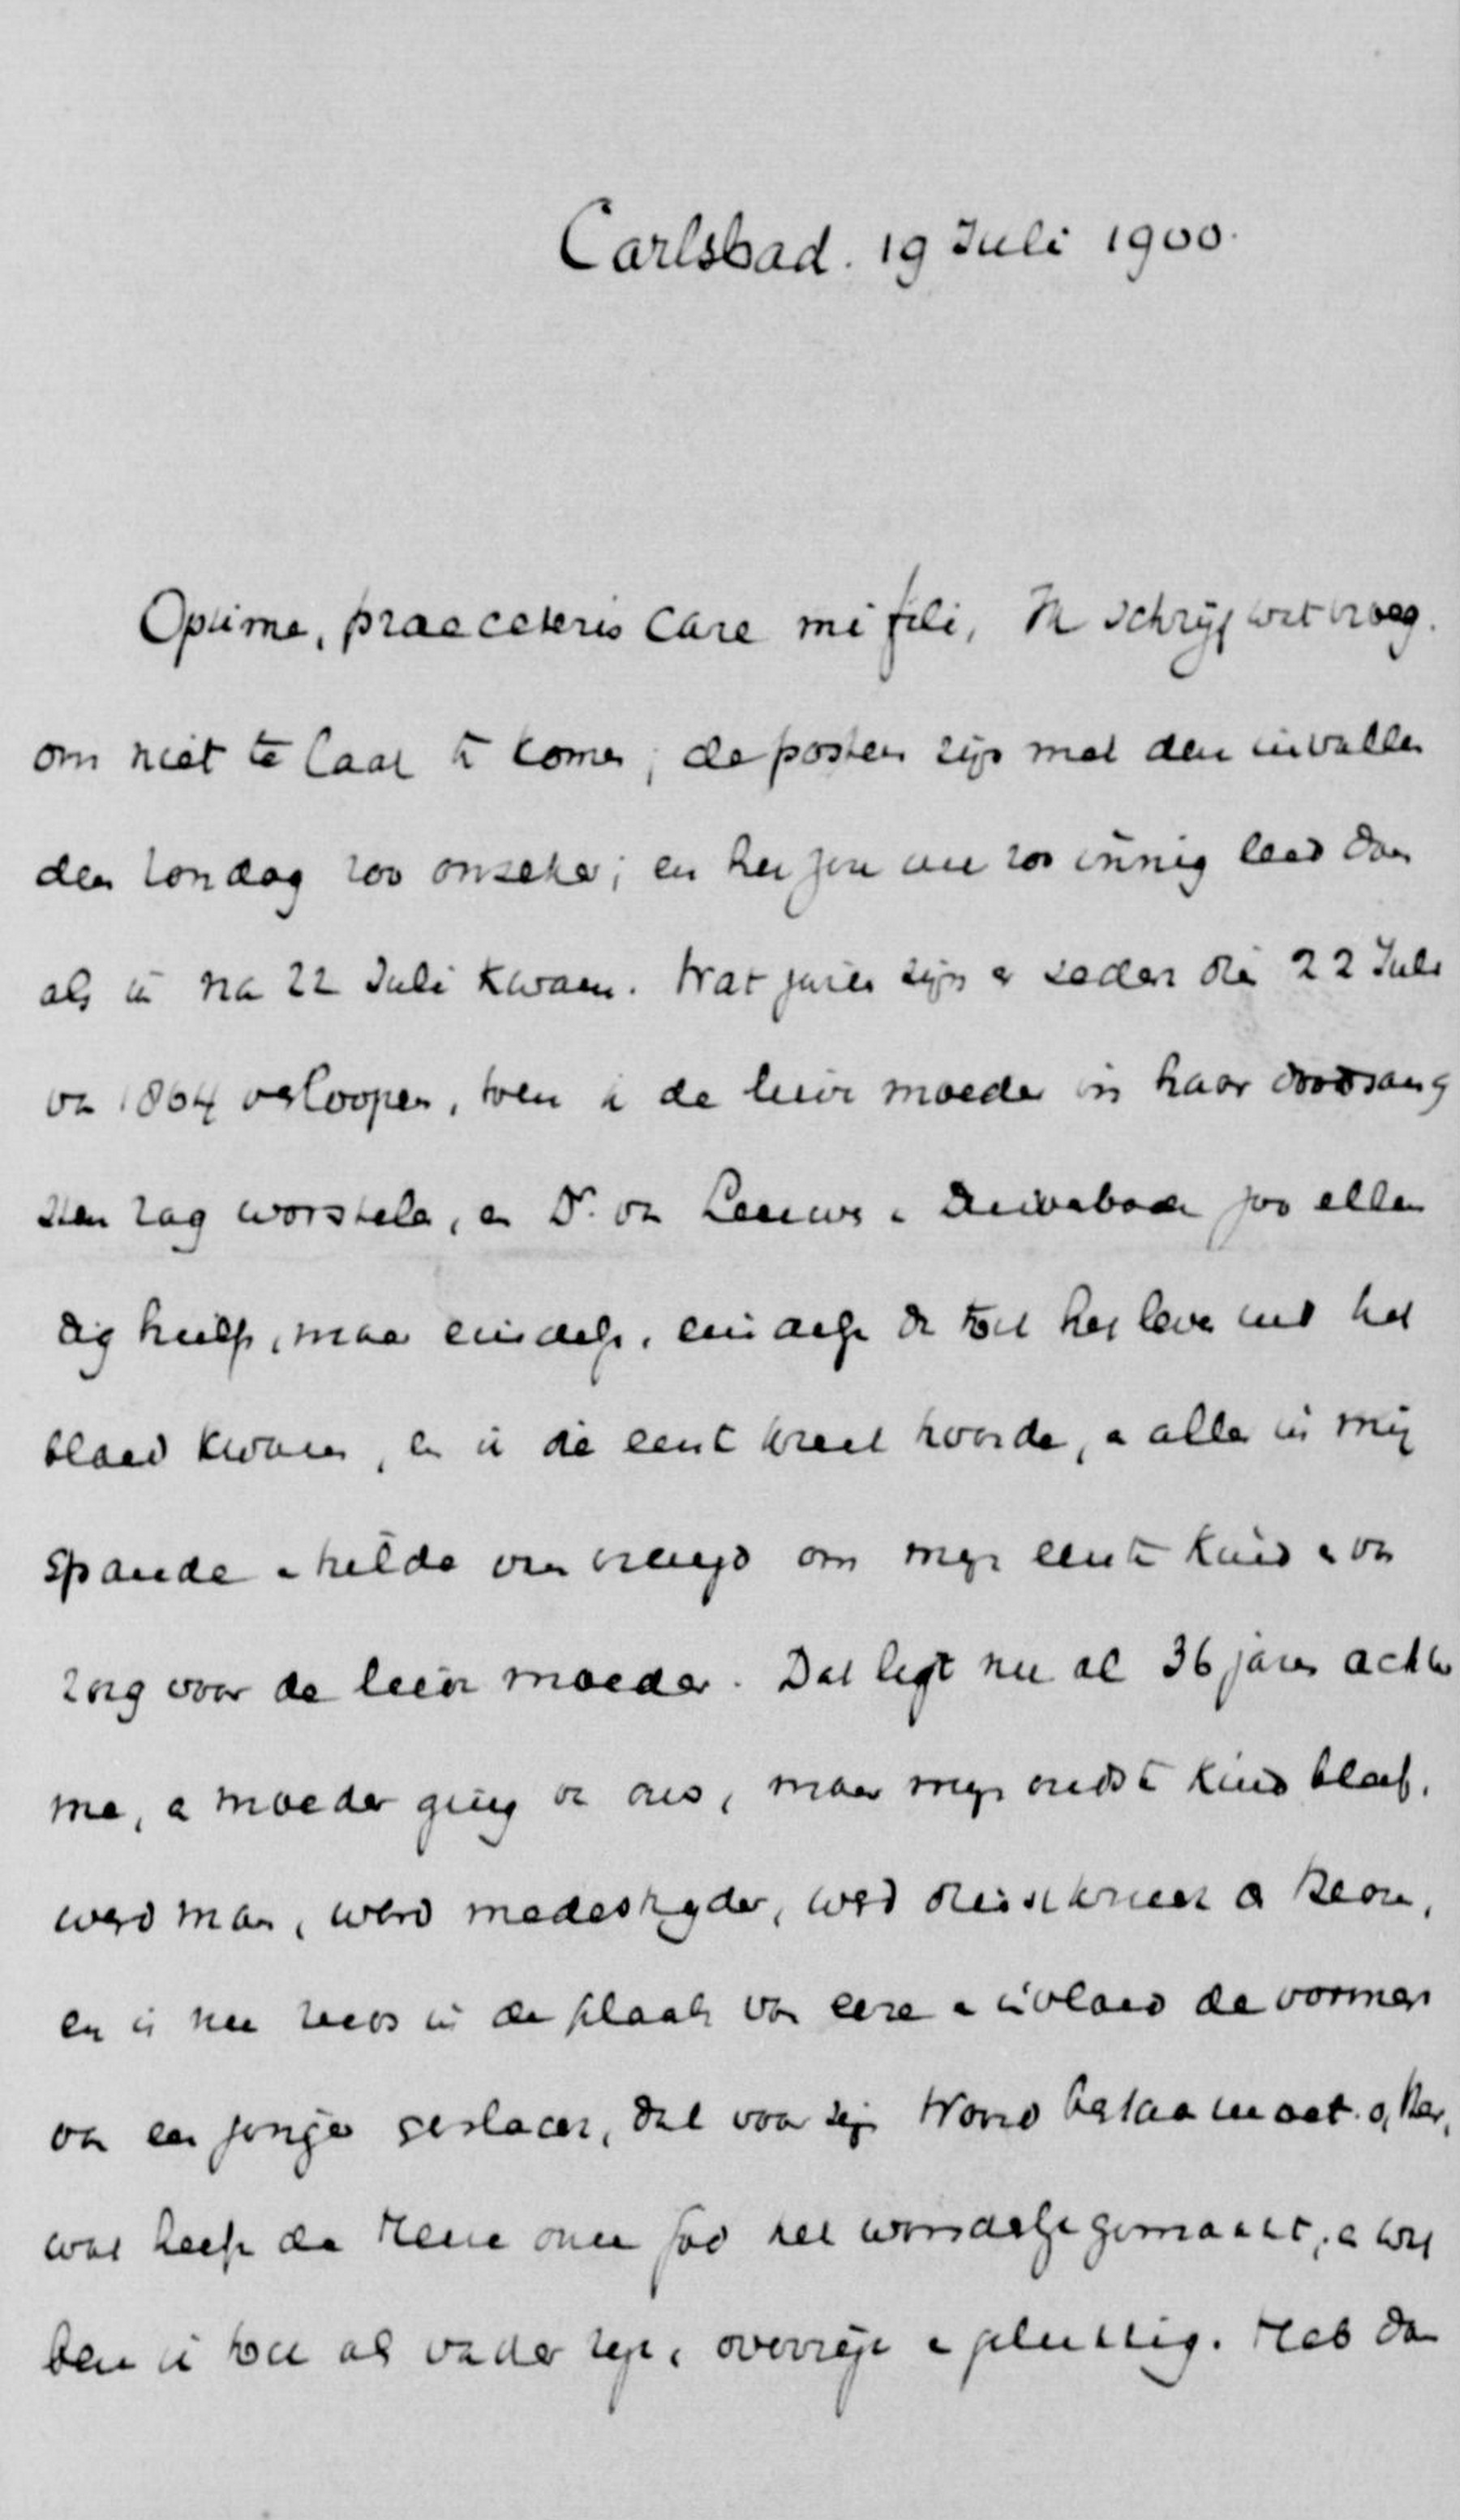 Carlsbad. 19 Juli 1900.
Optime, praeceteris care mi fili, Ik schrijf wat vroeg.
om niet te laat te komen; de posten zijn met den invallen
den Zondag zoo onzeker; en het zou me zoo innig leed doen
als ik na 22 Juli kwam. Wat jaren zijn er sedert die 22 Juli
van 1864 verloopen, toen ik de lieve moeder in haar doodsang
sten zag worstelen, en Dr. van Leeuwen Beverboode zoo ellen
dig hielp, maar eindelijk, eindelijk dan toch het leven uit het
bloed kwam, en ik die eerste kreet hoorde, en alles in mij
spande en trilde van vreugd om mijn eerste kind en van
zorg voor de lieve moeder. Dat ligt nu al 36 jaren achter
me, en moeder ging van ons, maar mijn oudste kind bleef,
werd man, werd medestrijder, werd
en is nu reeds in de plaats van eere en invloed de vormer
van een jonger geslacht, dat voor zijn Woord betaan moet. o, Her,
wat heeft de Heere onze God het wonderlijk gemaakt, en wat
ben ik toch als vader rijk, overrijk en gelukkig. Heb dan